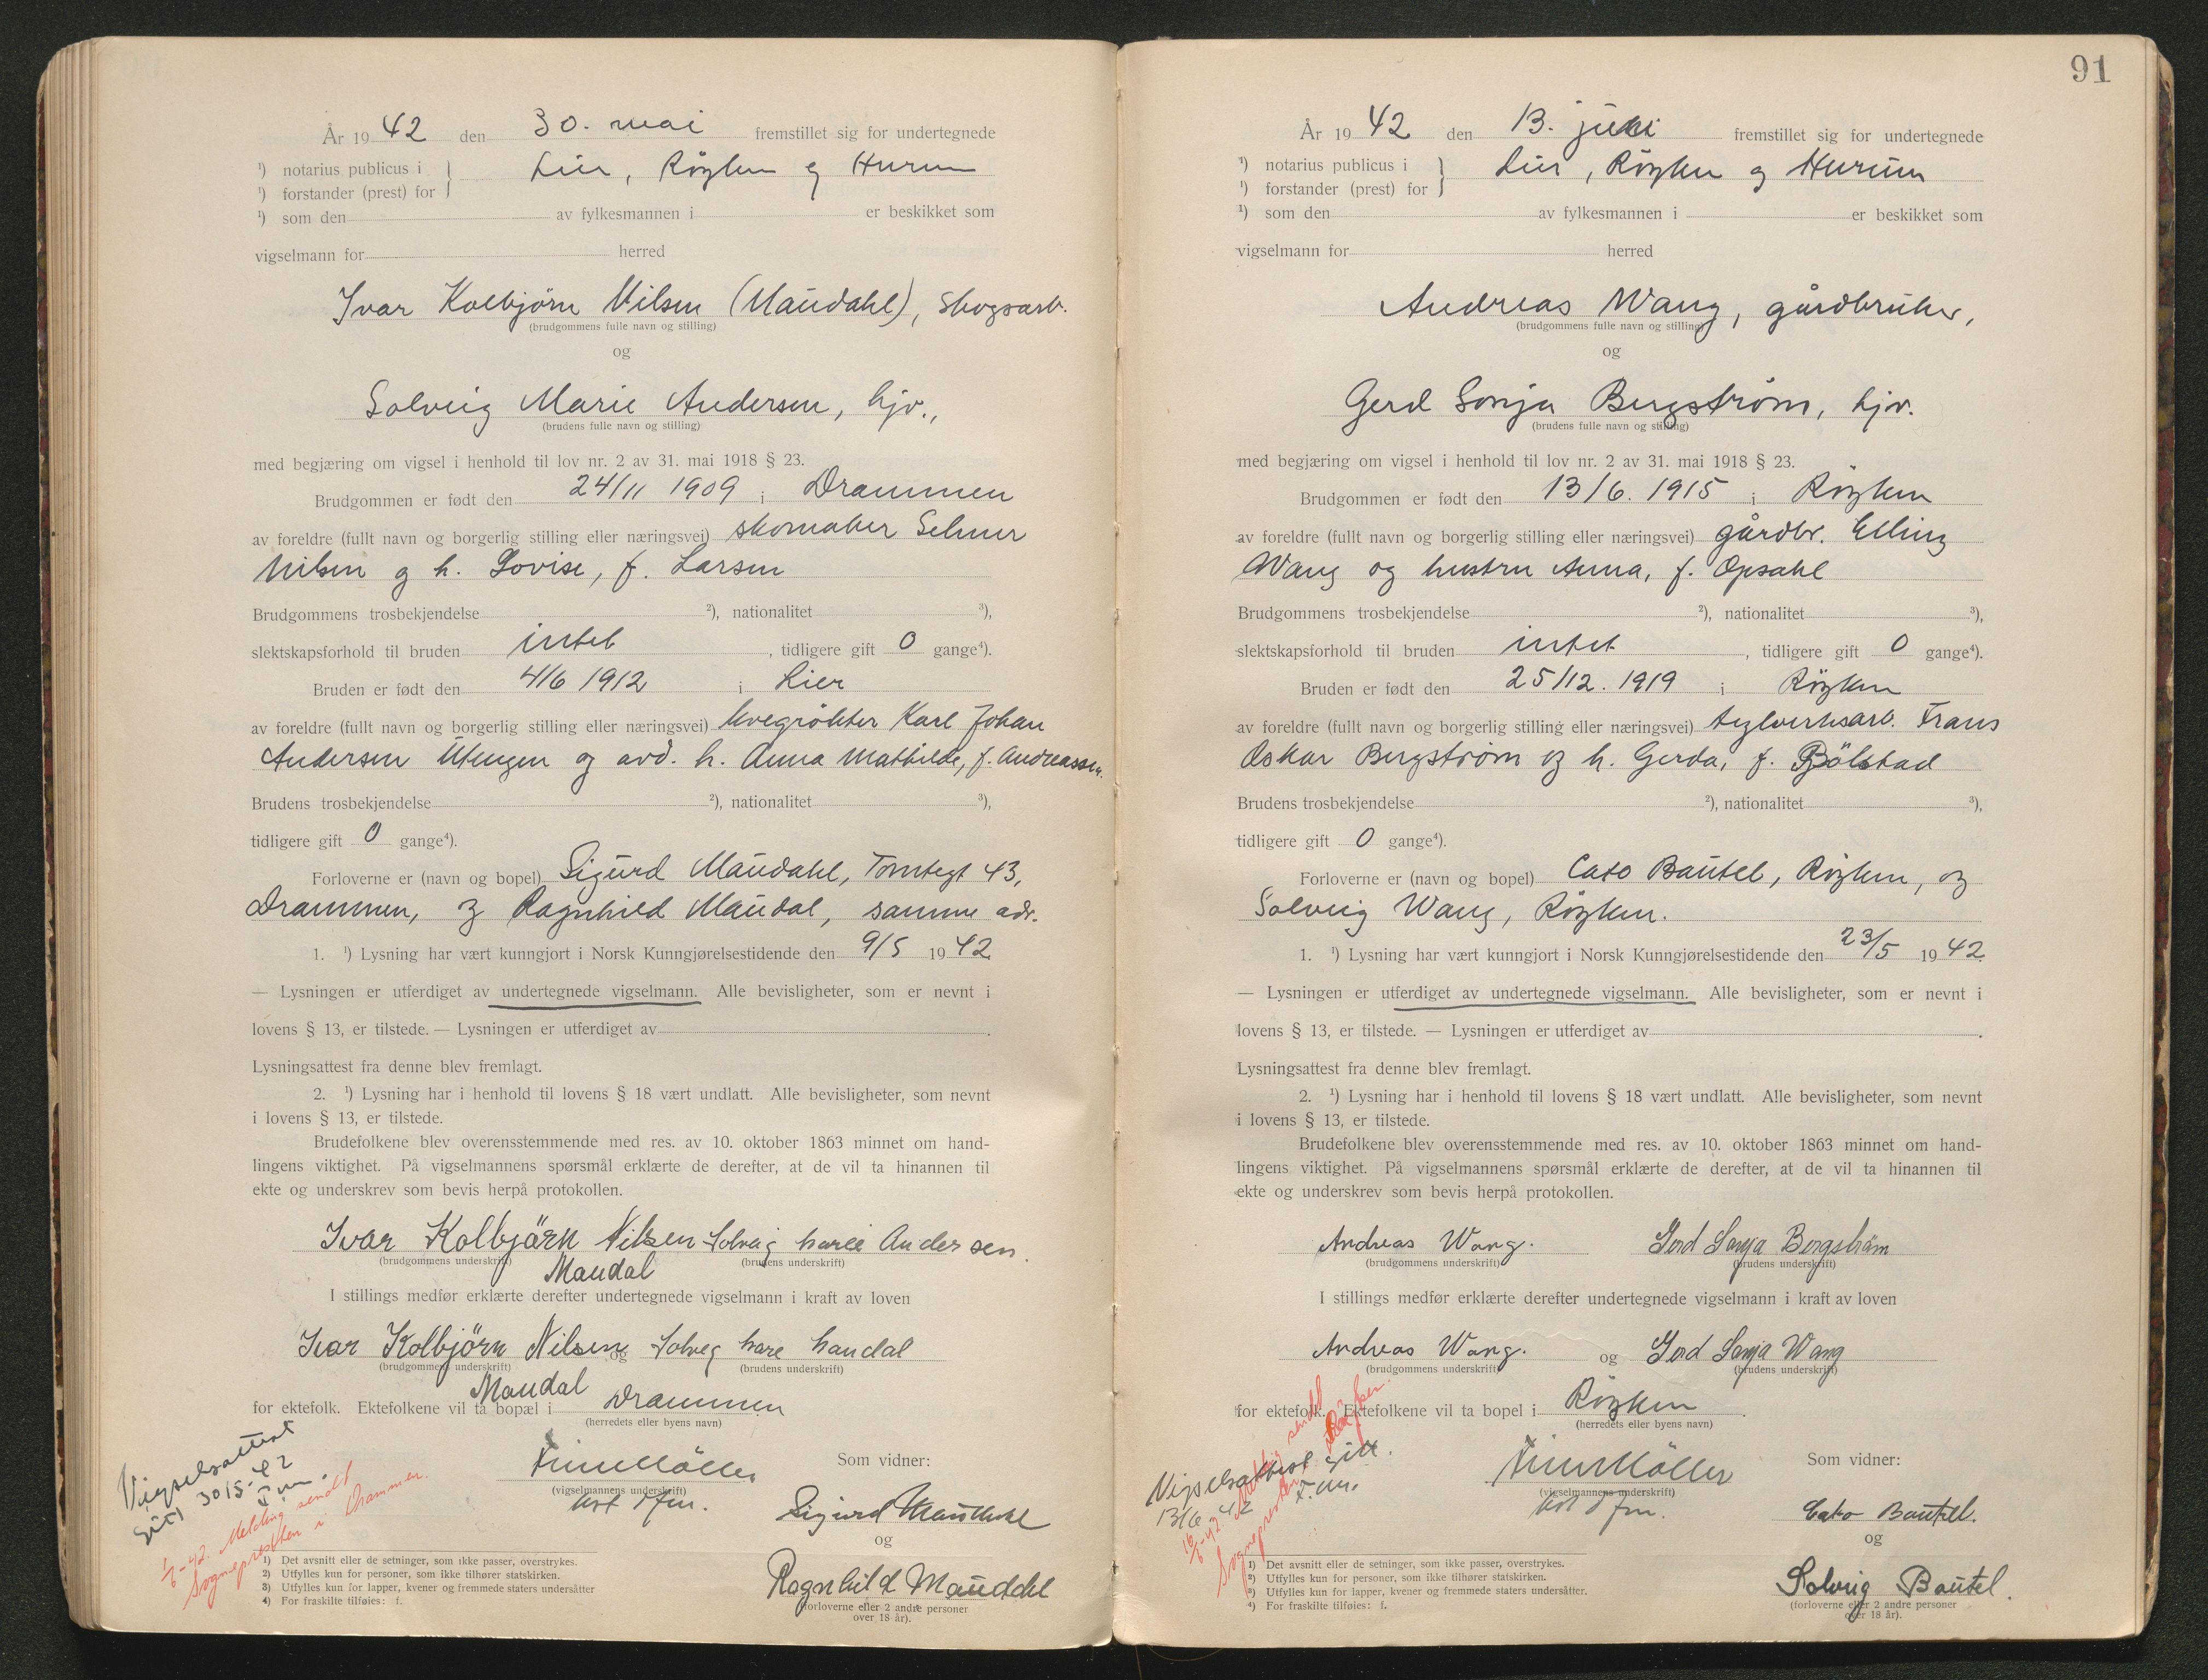 År 19 42 den 30. mai fremstillet sig for undertegnede
¹) notarius publicus i } Lier, Røyken og Hurum
¹) forstander (prest) for
¹) som den av fylkesmannen i er beskikket som
vigselmann for herred
Ivar Kolbjørn Nilsen (Maudahl), skogsarb.
(brudgommens fulle navn og stilling)
og
Solveig Marie Andersen, hjv.,
(brudens fulle navn og stilling)
med begjæring om vigsel i henhold til lov nr. 2 av 31. mai 1918 § 23.
Brudgommen er født den 24/11 1909 i Drammen
av foreldre (fullt navn og borgerlig stilling eller næringsvei) skomaker Selmer
Nilsen og h. Lovise, f. Larsen
Brudgommens trosbekjendelse ²), nationalitet ³),
slektskapsforhold til bruden intet , tidligere gift 0 gange⁴).
Bruden er født den 4/6 1912 i Lier
av foreldre (fullt navn og borgerlig stilling eller næringsvei) kvegrøkter Karl Johan
Andersen Utengen og avd. h. Anna Mathilde, f. Andreassen.
Brudens trosbekjendelse ²), nationalitet ³),
tidligere gift 0 gange⁴).
Forloverne er (navn og bopel) Sigurd Maudahl, Tomtegt 43,
Drammen, og Ragnhild Maudal, samme adr.
1. ¹) Lysning har vært kunngjort i Norsk Kunngjørelsestidende den 9/5 19 42
— Lysningen er utferdiget av undertegnede vigselmann. Alle bevisligheter, som er nevnt i
lovens § 13, er tilstede. — Lysningen er utferdiget av .
Lysningsattest fra denne blev fremlagt.
2. ¹) Lysning har i henhold til lovens § 18 vært undlatt. Alle bevisligheter, som nevnt
i lovens § 13, er tilstede.
Brudefolkene blev overensstemmende med res. av 10. oktober 1863 minnet om hand-
lingens viktighet. På vigselmannens spørsmål erklærte de derefter, at de vil ta hinannen til
ekte og underskrev som bevis herpå protokollen.
Ivar Kolbjörn Nilsen Solveig Marie Andersen.
(brudgommens underskrift) (brudens underskrift)
Maudal
I stillings medfør erklærte derefter undertegnede vigselmann i kraft av loven
Ivar Kolbjörn Nilsen og Solveg Mare Maudal
(brudgommens underskrift) (brudens underskrift)
Maudal
for ektefolk. Ektefolkene vil ta bopæl i Drammen
(herredets eller byens navn)
Vigselsattest
gitt 30/5-42
F.m.
1/6-42. Melding sendt
Sognepresten i Drammen.
Finn Møller
(vigselmannens underskrift)
kst dfm.
Som vidner:
Sigurd Maudahl
og
Ragnhild Maudahl
(forloverne eller 2 andre personer
over 18 år).
1) Det avsnitt eller de setninger, som ikke passer, overstrykes.
2) Utfylles kun for personer, som ikke tilhører statskirken.
3) Utfylles kun for lapper, kvener og fremmede staters undersåtter
4) For fraskilte tilføies: f.
91
År 19 42 den 13. juni fremstillet sig for undertegnede
¹) notarius publicus i } Lier, Røyken og Hurum
¹) forstander (prest) for
¹) som den av fylkesmannen i er beskikket som
vigselmann for herred
Andreas Wang, gårdbruker,
(brudgommens fulle navn og stilling)
og
Gerd Sonja Bergstrøm, hjv.
(brudens fulle navn og stilling)
med begjæring om vigsel i henhold til lov nr. 2 av 31. mai 1918 § 23.
Brudgommen er født den 13/6. 1915 i Røyken
av foreldre (fullt navn og borgerlig stilling eller næringsvei) gårdbr. Elling
Wang og hustru Anna, f. Opsahl
Brudgommens trosbekjendelse ²), nationalitet ³),
slektskapsforhold til bruden intet , tidligere gift 0 gange⁴).
Bruden er født den 25/12. 1919 i Røyken
av foreldre (fullt navn og borgerlig stilling eller næringsvei) teglverksarb. Frans
Oskar Bergstrøm og h. Gerda, f. Bølstad
Brudens trosbekjendelse ²), nationalitet ³),
tidligere gift 0 gange⁴).
Forloverne er (navn og bopel) Cato Bautel, Røyken, og
Solveig Wang, Røyken.
1. ¹) Lysning har vært kunngjort i Norsk Kunngjørelsestidende den 23/5 19 42.
— Lysningen er utferdiget av undertegnede vigselmann. Alle bevisligheter, som er nevnt i
lovens § 13, er tilstede. — Lysningen er utferdiget av .
Lysningsattest fra denne blev fremlagt.
2. ¹) Lysning har i henhold til lovens § 18 vært undlatt. Alle bevisligheter, som nevnt
i lovens § 13, er tilstede.
Brudefolkene blev overensstemmende med res. av 10. oktober 1863 minnet om hand-
lingens viktighet. På vigselmannens spørsmål erklærte de derefter, at de vil ta hinannen til
ekte og underskrev som bevis herpå protokollen.
Andreas Wang. Gerd Sonja Bergstrøm
(brudgommens underskrift) (brudens underskrift)
I stillings medfør erklærte derefter undertegnede vigselmann i kraft av loven
Andreas Wang. og Gerd Sonja Wang
(brudgommens underskrift) (brudens underskrift)
for ektefolk. Ektefolkene vil ta bopel i Røyken .
(herredets eller byens navn)
Vigselsattest gitt.
13/6-42 F.m.
16/6-42. Melding sendt
Sognepresten i Røyken.
Finn Møller
(vigselmannens underskrift)
kst dfm.
Som vidner:
Cato Bautel.
og
Solveig Bautel.
(forloverne eller 2 andre personer
over 18 år).
1) Det avsnitt eller de setninger, som ikke passer, overstrykes.
2) Utfylles kun for personer, som ikke tilhører statskirken.
3) Utfylles kun for lapper, kvener og fremmede staters undersåtter.
4) For fraskilte tilføies: f.